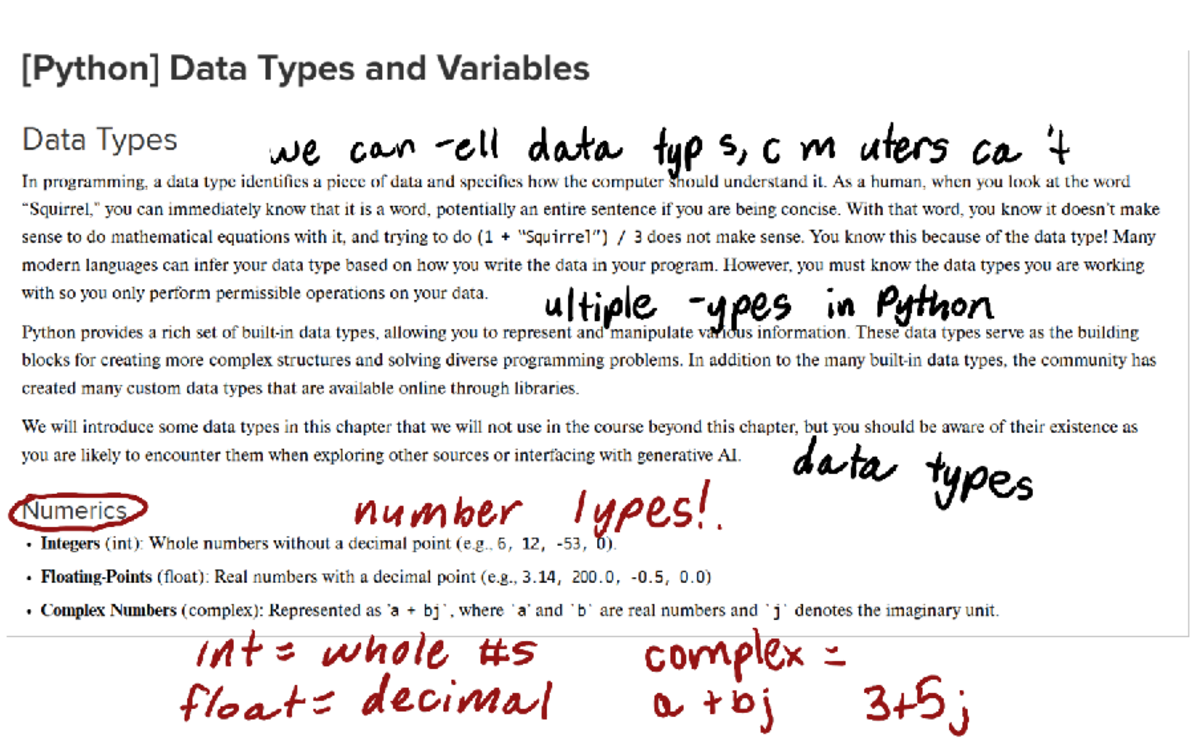 [Python] Data Types and Variables
Data Types
we can -ell data typ s, c m uters ca 't
In programming, a data type identifies a piece of data and specifies how the computer should understand it. As a human, when you look at the word
“Squirrel,” you can immediately know that it is a word, potentially an entire sentence if you are being concise. With that word, you know it doesn't make
sense to do mathematical equations with it, and trying to do (1 + "Squirrel") / 3 does not make sense. You know this because of the data type! Many
modern languages can infer your data type based on how you write the data in your program. However, you must know the data types you are working
with so you only perform permissible operations on your data.
ultiple -ypes in Python
Python provides a rich set of built-in data types, allowing you to represent and manipulate various information. These data types serve as the building
blocks for creating more complex structures and solving diverse programming problems. In addition to the many built-in data types, the community has
created many custom data types that are available online through libraries.
We will introduce some data types in this chapter that we will not use in the course beyond this chapter, but you should be aware of their existence as
you are likely to encounter them when exploring other sources or interfacing with generative AI.
data types
Numerics
number types!.
• Integers (int): Whole numbers without a decimal point (e.g., 6, 12, -53, 0).
• Floating-Points (float): Real numbers with a decimal point (e.g., 3.14, 200.0, -0.5, 0.0)
• Complex Numbers (complex): Represented as `a + bj`, where `a` and `b` are real numbers and `j` denotes the imaginary unit.
int = whole #s
float = decimal
complex =
a + bj 3+5j